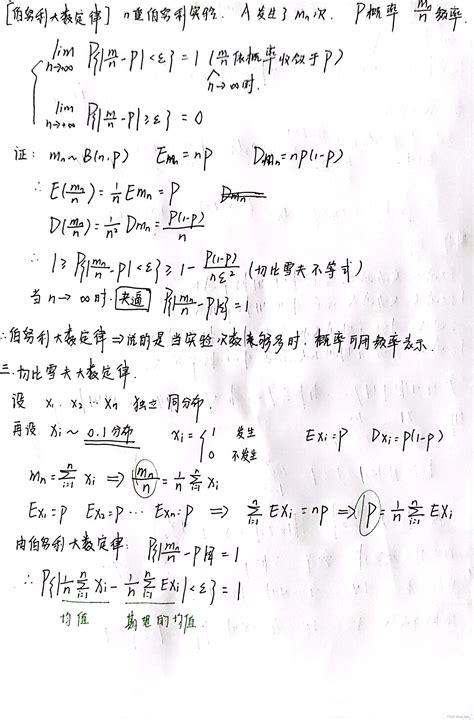 [伯努利大数定律] n重伯努利实验. A发生了mn次. P概率 mn/n 频率.
lim n→∞ P{|m/n - p|<ε} = 1 (m/n 依概率收敛于P)
n→∞时.
lim n→+∞ P{|m/n - p|≥ε} = 0
证: mn~B(n,p) Emn = np Dmn = np(1-p)
∴ E(mn/n) = 1/n Emn = P
D(mn/n) = 1/n² Dmn = P(1-P)/n
∴ 1 ≥ P{|mn/n - p|<ε} ≥ 1 - P(1-P)/nε² (切比雪夫不等式)
当 n→∞时. 夹逼 P{|mn/n - p|<ε} = 1
∴伯努利大数定律⇒说的是当实验次数足够多时. 概率可用频率表示.
三.切比雪夫大数定律.
设 X1. X2. … Xn 独立同分布.
再设 Xi ~ 0.1分布 Xi = { 1 发生 EXi = P DXi = p(1-p)
0 不发生
mn = Σ(i=1→n) Xi ⇒ mn/n = 1/n Σ(i=1→n) Xi
EX1 = P EX2 = P … EXn = P ⇒ Σ(i=1→n) EXi = np ⇒ P = 1/n Σ(i=1→n) EXi
由伯努利大数定律: P{|mn/n - p|<ε} = 1
∴ P{|1/n Σ(i=1→n) Xi - 1/n Σ(i=1→n) EXi|<ε} = 1
均值 期望的均值